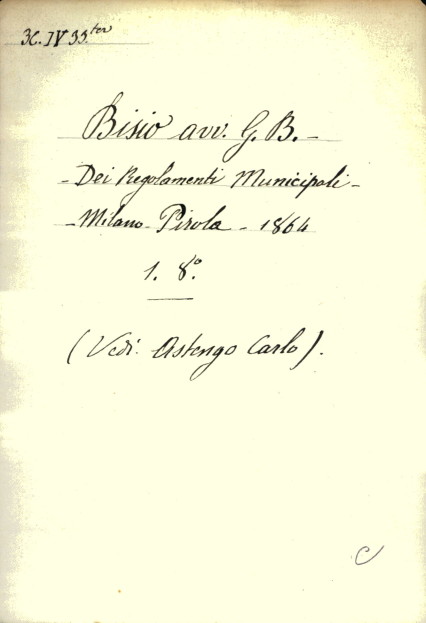 3C.IV 33.ter
Bisio avv. G. B. -
- Dei Regolamenti Municipali -
- Milano - Pirola - 1864
1. 8.°
(Vedi: Astengo Carlo).
C